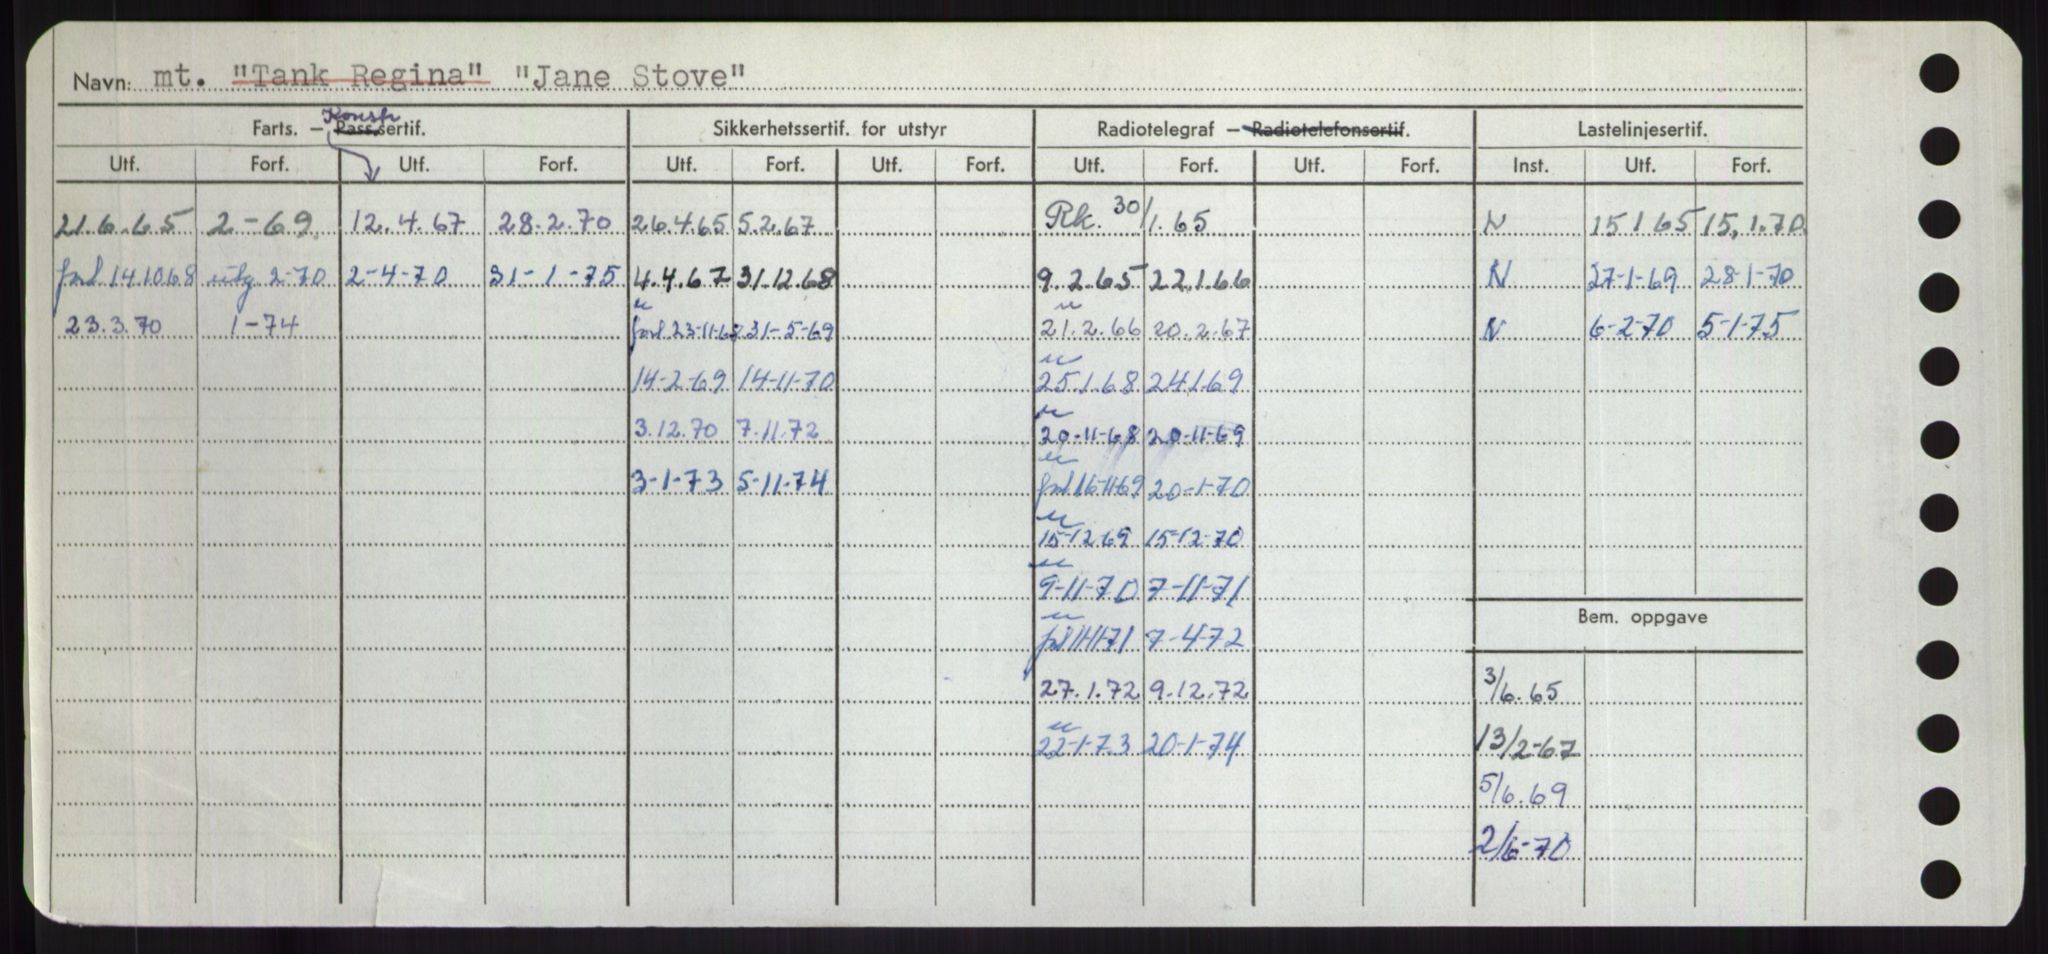 Navn: mt. "Tank Regina" "Jane Stove"
Konstr
Farts. – Pass.sertif. Sikkerhetssertif. for utstyr Radiotelegraf – Radiotelefonsertif. Lastelinjesertif.
Utf. Forf. Utf. Forf. Utf. Forf. Utf. Forf. Utf. Forf. Utf. Forf. Inst. Utf. Forf.
21.6.65 2-69 12.4.67 28.2.70 26.4.65 5.2.67 Rk. 30/1.65 N 15 1 65 15.1.70
forl 14.10.68 utg. 2-70 2-4-70 31-1-75 4.4.67 31.12.68 9.2.65 22.1.66 N 27-1-69 28-1-70
23.3.70 1-74 " forl 23-11-68 31-5-69 " 21.2.66 20.2.67 N 6-2-70 5-1-75
14-2-69 14-11-70 " 25.1.68 24.1.69
3.12.70 7.11.72 " 20-11-68 20-11-69
3-1-73 5-11-74 " forl 16-11-69 20-1-70
" 15-12-69 15-12-70
" 9-11-70 7-11-71
Bem. oppgave
" forl 11-11-71 7-4-72
27.1.72 9.12.72 3/6.65
" 22-1-73 20-1-74 13/2-67
5/6.69
2/6-70